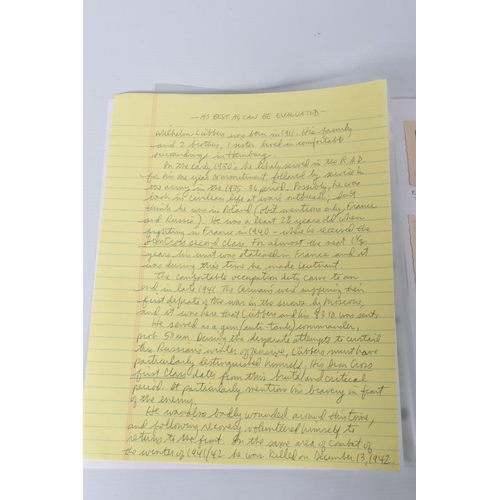 — AS BEST AS CAN BE EVALUATED —
Wilhelm Lübbers was born in 1911. His family
and 2 brothers, 1 sister lived in comfortable
surroundings in Hamburg.
In the early 1930's he likely served in the R.A.D.
for a one year commitment, followed by service in
the army in the 1935-36 period. Possibly he was
back in civilian life at war's outbreak; don't
think he was in Poland (obit mentions only France
and Russia). He was at least 28 years old when
fighting in France in 1940 - where he received the
Iron Cross second class. For almost the next 1½
years his unit was stationed in France and it
was during this time he made Lieutenant.
The comfortable occupation duty came to an
end in late 1941. The Germans were suffering their
first defeats of the war in the snows by Moscow,
and it was here that Lübbers and his were sent.
He served as a gun (anti-tank) commander,
prob. 50mm. During the desperate attempts to curtail
the Russians winter offensive, Lübbers must have
particularly distinguished himself, his Iron Cross
first class dates from this brutal and critical
period. It particularly mentions his bravery in front
of the enemy.
He was also badly wounded around this time,
and following recovery volunteered himself to
return to the front. In the same area of combat of
the winter of 1941/42 he was killed on December 13, 1942.